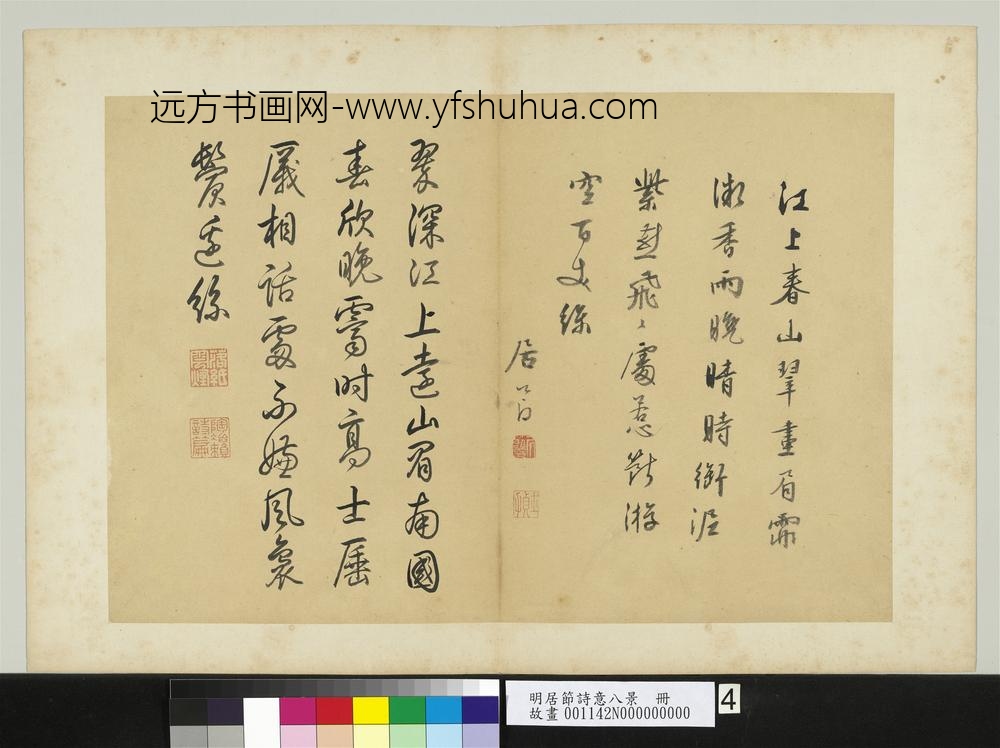 远方书画网-www.yfshuhua.com
江上春山翠畫眉霏
微香雨晚晴時銜泥
紫燕飛〻處惹斷游
空百丈絲
居節
翠深江上遠山眉南國
春欣晚霽時高士
相話處不嫌風裊
鬢邊絲
落紙雲煙
明居節詩意八景 冊
故畫 001142N000000000
4